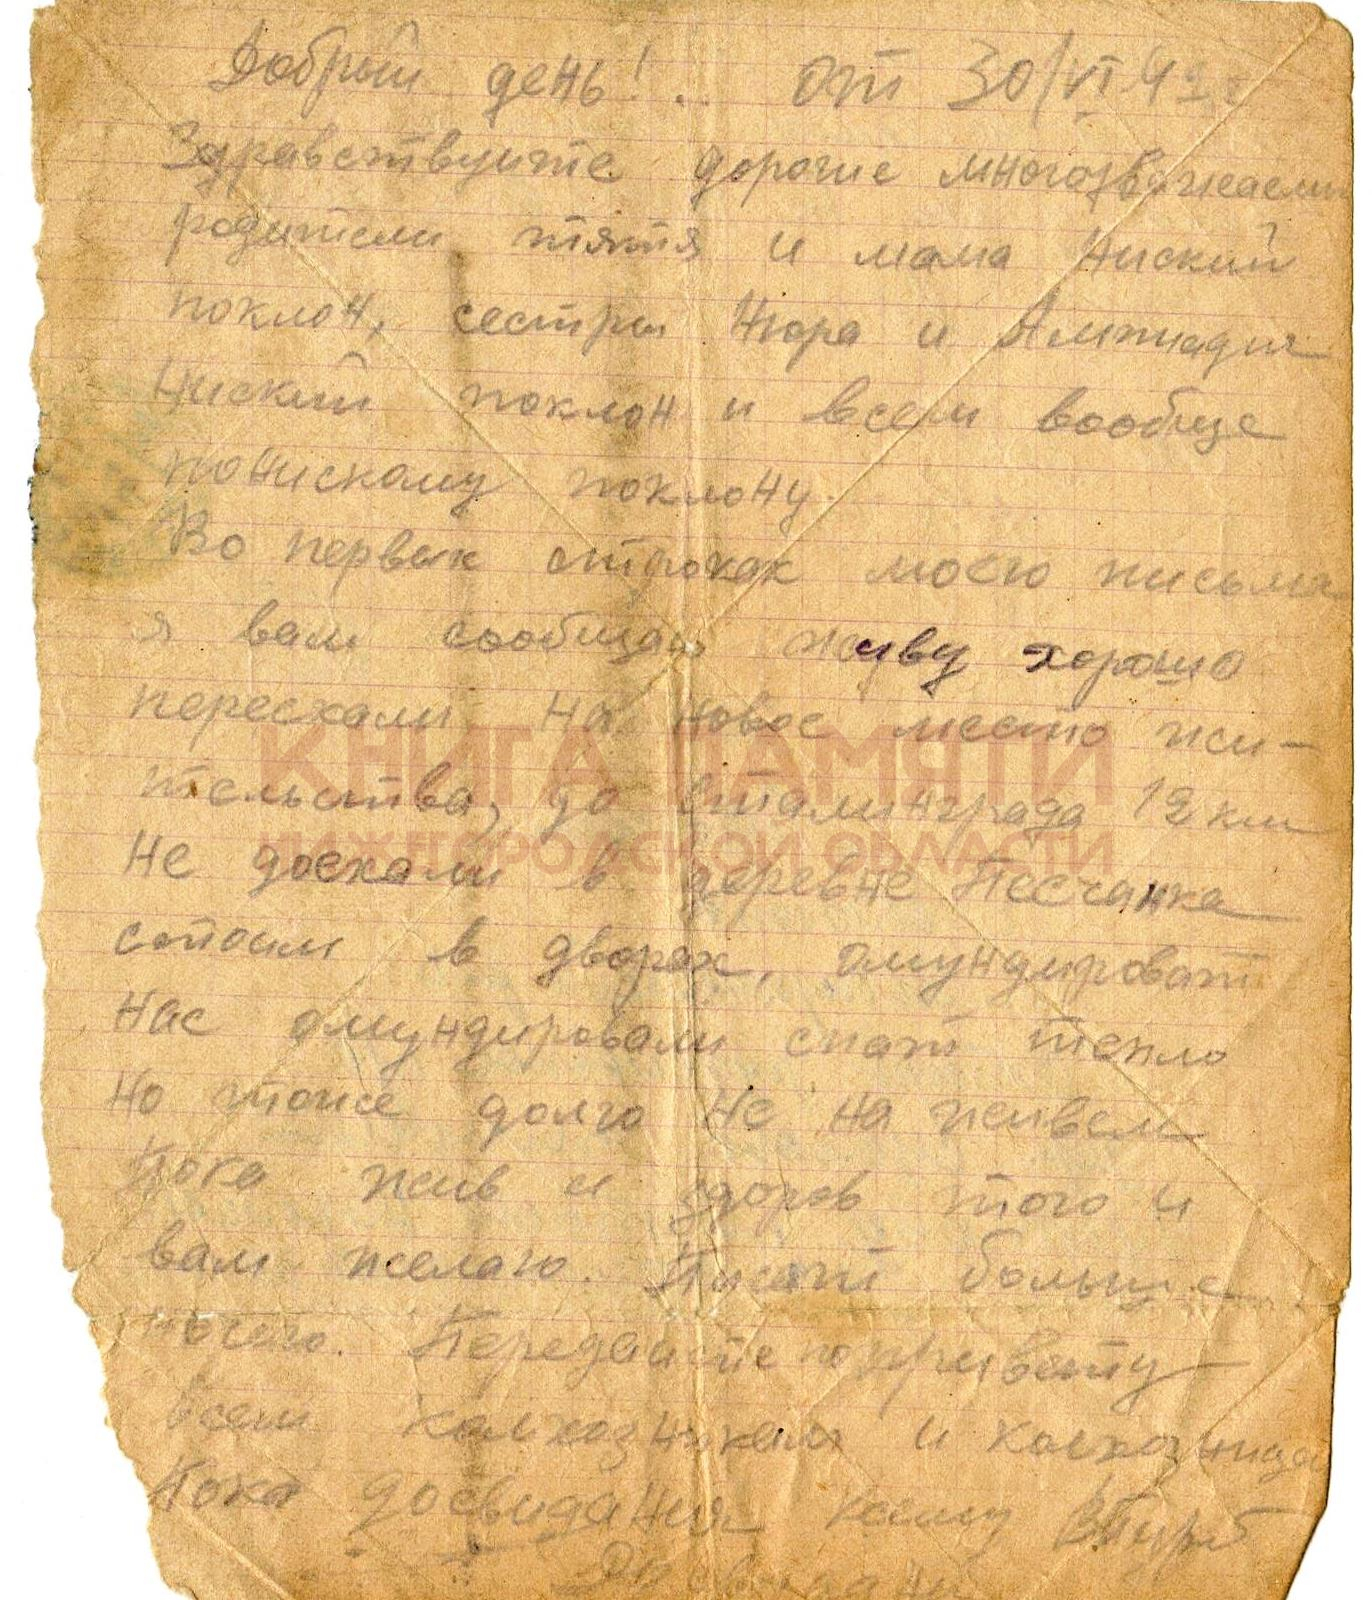 Добрый день! от 30/VI 42 г
Здравствуйте дорогие многоуважаемы
родители тятя и мама Ниский
поклон, сестры Нюра и
Ниский поклон и всем вообще
понискому поклону.
Во первых строках моею письма
я вам сообщаю живу хорошо
переехали на новое место жи-
тельства, до Сталинграда 12 км
КНИГА ПАМЯТИ
НИЖЕГОРОДСКОЙ ОБЛАСТИ
Не доехали в деревне Песчанка
стоим в дворах, амундироват
нас амундировали спат тепло
но тоже долго не на живем
Пока жив и здоров того и
вам желаю. Писат больше
нечего. Передайте попривету
всем колхозникам и колхозница
Пока досвидания к сему
Досвидани